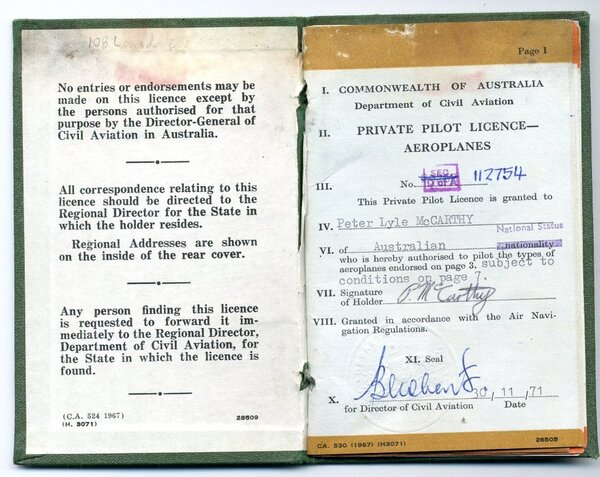 108
No entries or endorsements may be
made on this licence except by
the persons authorised for that
purpose by the Director-General of
Civil Aviation in Australia.
All correspondence relating to this
licence should be directed to the
Regional Director for the State in
which the holder resides.
Regional Addresses are shown
on the inside of the rear cover.
Any person finding this licence
is requested to forward it im-
mediately to the Regional Director,
Department of Civil Aviation, for
the State in which the licence is
found.
(C.A. 524 1967)
(H. 3071)
28509
Page 1
I. COMMONWEALTH OF AUSTRALIA
Department of Civil Aviation
II. PRIVATE PILOT LICENCE—
AEROPLANES
III. No. 112754
This Private Pilot Licence is granted to
IV. Peter Lyle McCARTHY
National Status
VI. of Australian nationality
who is hereby authorised to pilot the types of
aeroplanes endorsed on page 3. subject to
conditions on page 7.
VII. Signature
of Holder P. McCarthy
VIII. Granted in accordance with the Air Navi-
gation Regulations.
XI. Seal
X. 30.11.71
for Director of Civil Aviation Date
CA. 530 (1967) (H3071)
28505